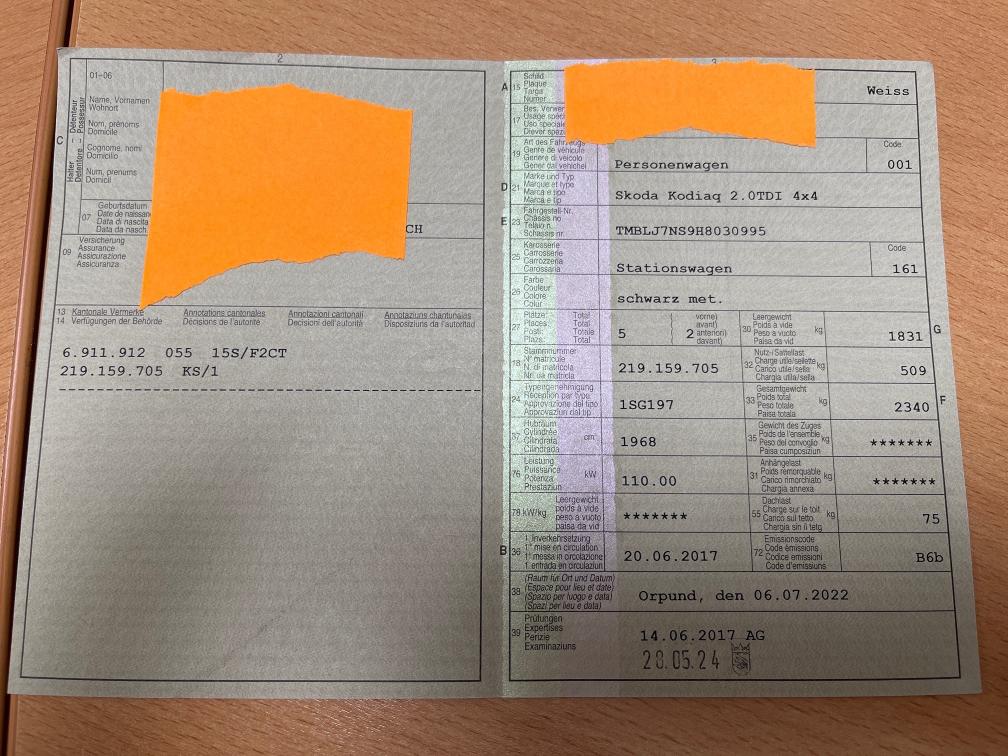 2
01-06
C
Halter – Détenteur
Detentore – Possessur
Name, Vornamen
Wohnort
Nom, prénoms
Domicile
Cognome, nomi
Domicilio
Num, prenums
Domicil
07
Geburtsdatum
Date de naissan
Data di nascita
Data da nasch.
CH
09
Versicherung
Assurance
Assicurazione
Assicuranza
13 Kantonale Vermerke Annotations cantonales Annotazioni cantonali Annotaziuns chantunales
14 Verfügungen der Behörde Décisions de l'autorité Decisioni dell'autorità Disposiziuns da l'autoritad
6.911.912 055 15S/F2CT
219.159.705 KS/1
3
A 15
Schild
Plaque
Targa
Numer
Weiss
17
Bes. Verwen
Usage spéci
Uso speciale
Diever spezi
19
Art des Fahrzeugs
Genre de véhicule
Genere di veicolo
Gener dal vehichel
Personenwagen
Code
001
D 21
Marke und Typ
Marque et type
Marca e tipo
Marca e tip
Skoda Kodiaq 2.0TDI 4x4
E 23
Fahrgestell-Nr.
Châssis no
Telaio n.
Schassis nr.
TMBLJ7NS9H8030995
25
Karosserie
Carrosserie
Carrozzeria
Carossaria
Stationswagen
Code
161
26
Farbe
Couleur
Colore
Colur
schwarz met.
27
Plätze: Total
Places: Total
Posti: Totale
Plazs: Total
5
vorne)
avant)
2 anteriori)
davant)
30
Leergewicht
Poids à vide
Peso a vuoto
Paisa da vid
kg
1831
G
18
Stammnummer
N° matricule
N. di matricola
Nr. da matricla
219.159.705
32
Nutz-/Sattellast
Charge utile/sellette
Carico utile/sella
Chargia utila/sella
kg
509
24
Typengenehmigung
Réception par type
Approvazione del tipo
Approvaziun dal tip
1SG197
33
Gesamtgewicht
Poids total
Peso totale
Paisa totala
kg
2340
F
37
Hubraum
Cylindrée
Cilindrata
Cilindrada
cm³
1968
35
Gewicht des Zuges
Poids de l'ensemble
Peso del convoglio
Paisa cumposiziun
kg
*******
76
Leistung
Puissance
Potenza
Prestaziun
kW
110.00
31
Anhängelast
Poids remorquable
Carico rimorchiato
Chargia annexa
kg
*******
78 kW/kg
Leergewicht
poids à vide
peso a vuoto
paisa da vid
*******
55
Dachlast
Charge sur le toit
Carico sul tetto
Chargia sin il tetg
kg
75
B 36
1. Inverkehrsetzung
1re mise en circulation
1a messa in circolazione
1. entrada en circulaziun
20.06.2017
72
Emissionscode
Code émissions
Codice emissioni
Code d'emissiuns
B6b
38
(Raum für Ort und Datum)
(Espace pour lieu et date)
(Spazio per luogo e data)
(Spazi per lieu e data)
Orpund, den 06.07.2022
39
Prüfungen
Expertises
Perizie
Examinaziuns
14.06.2017 AG
28.05.24